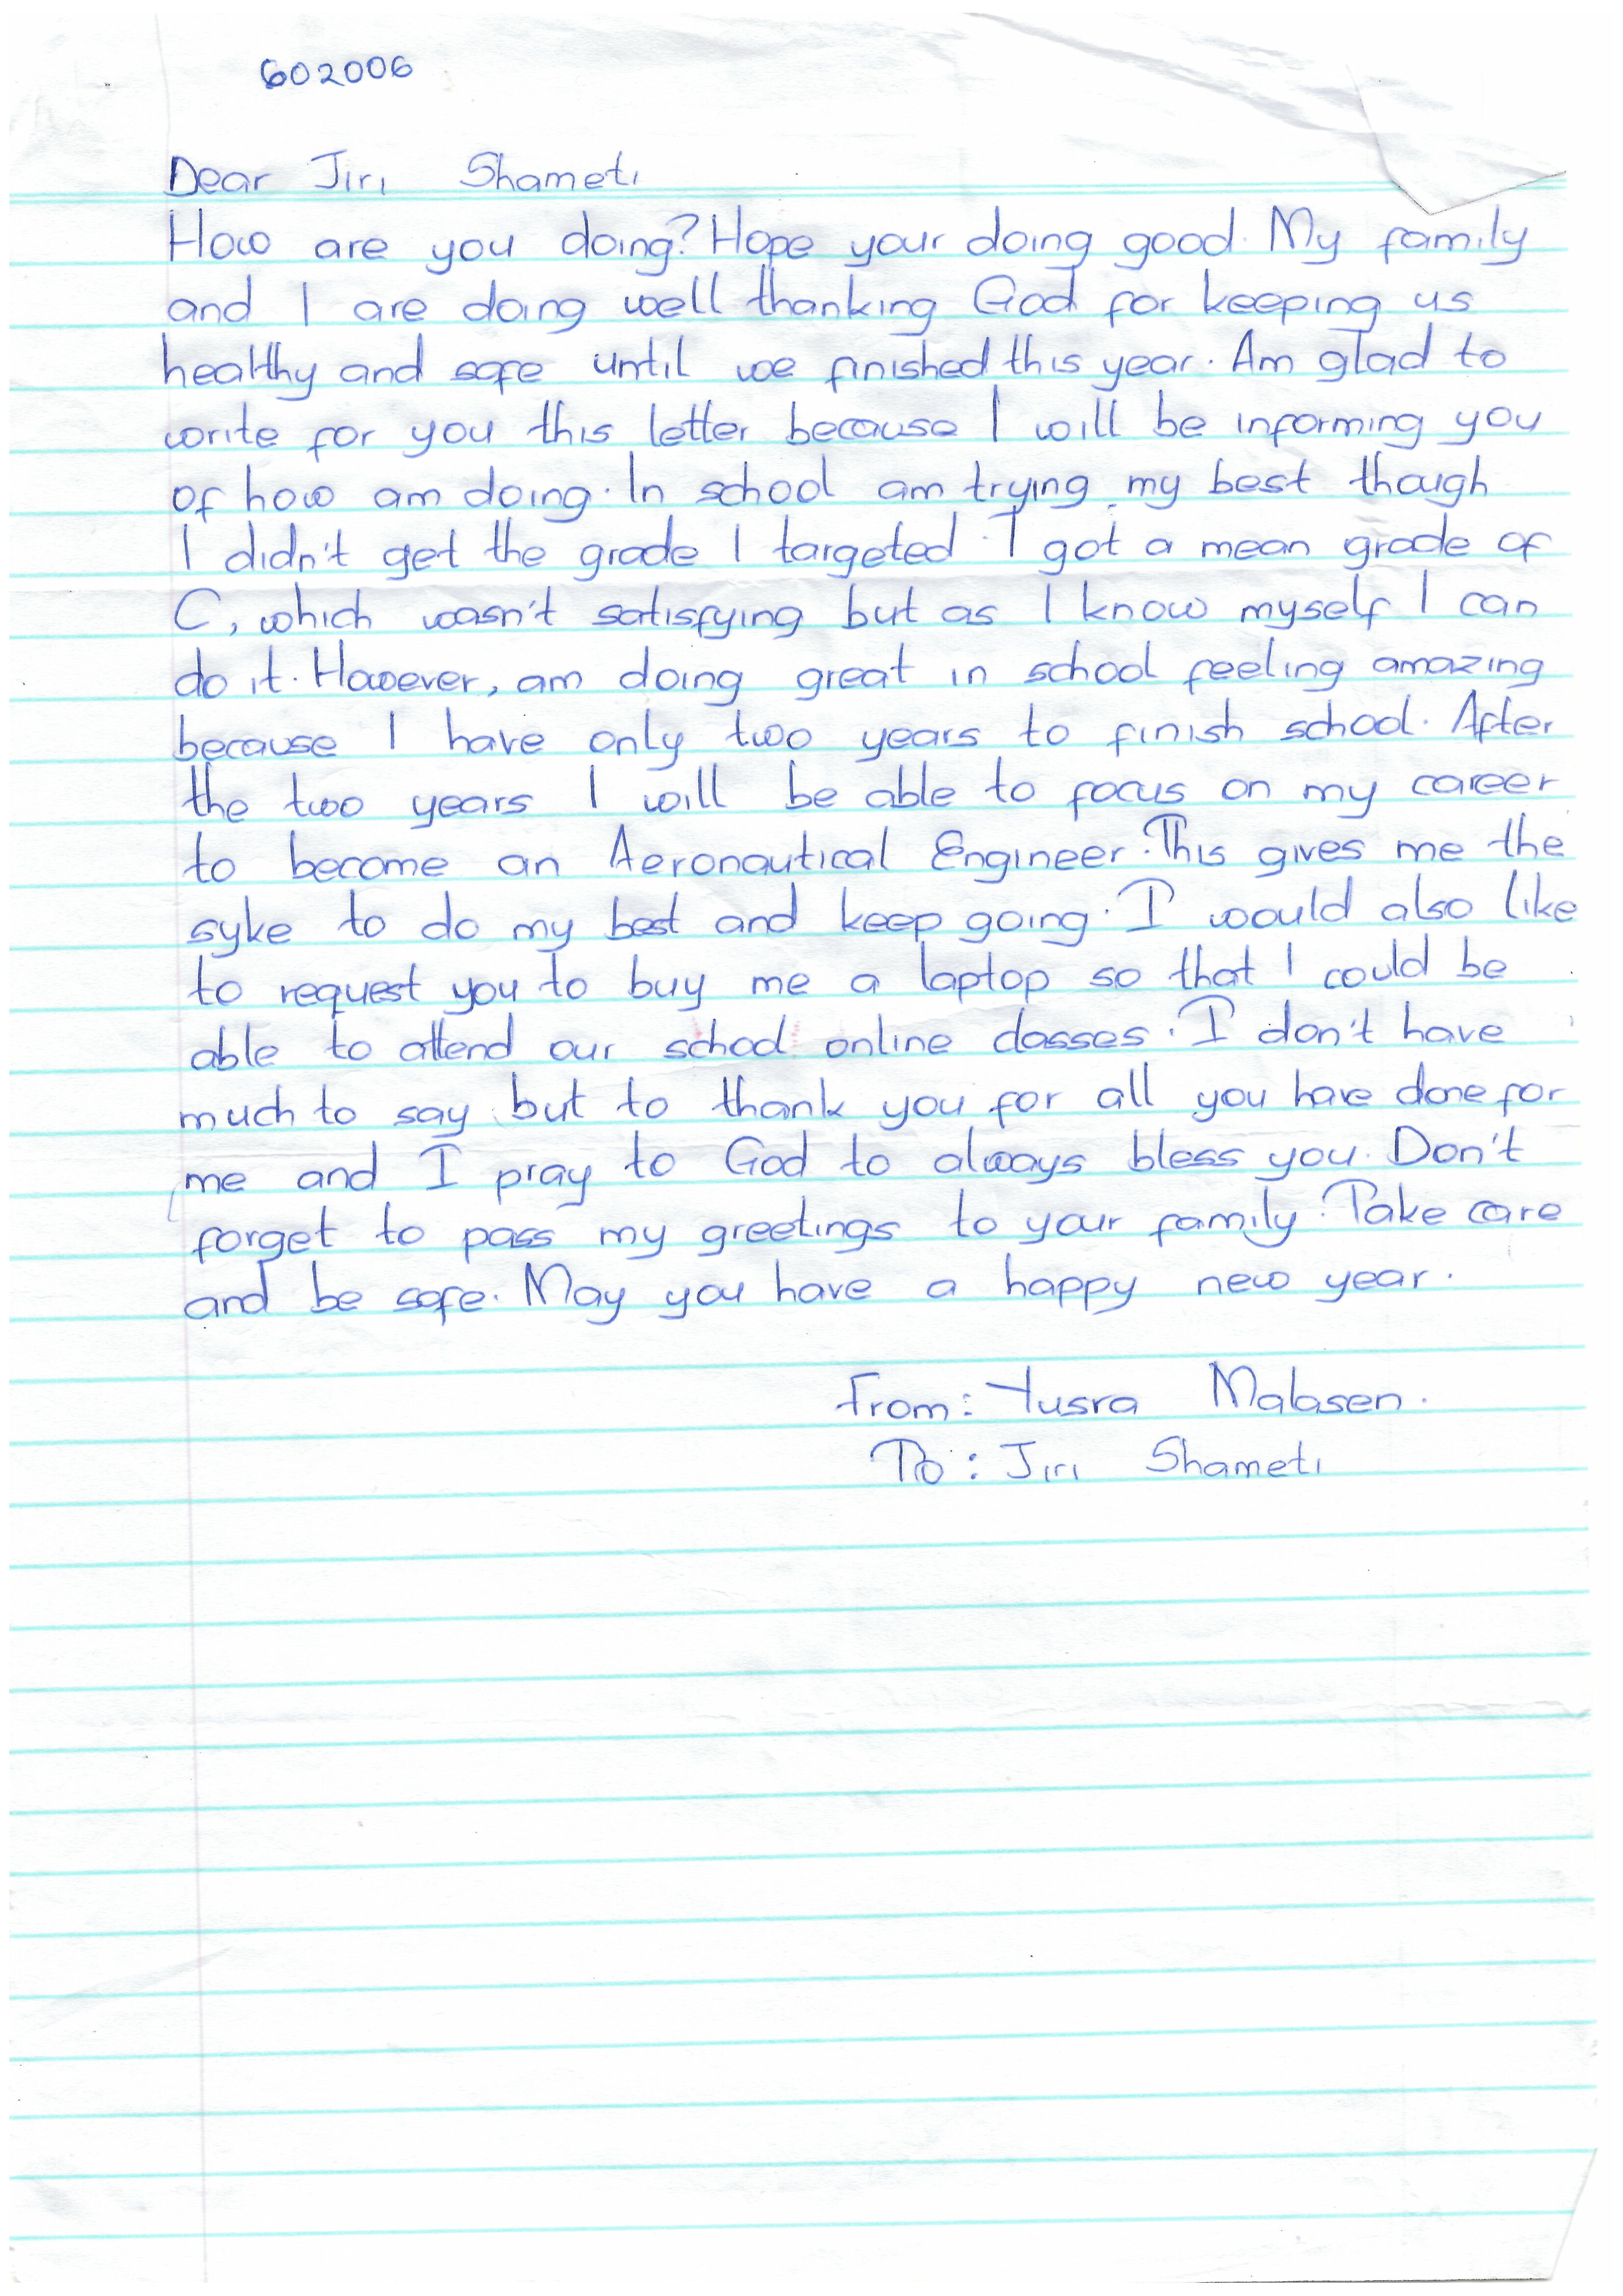 602006
Dear Jiri Shameti
How are you doing? Hope your doing good. My family
and I are doing well thanking God for keeping us
healthy and safe until we finished this year. Am glad to
write for you this letter because I will be informing you
of how am doing. In school am trying my best though
I didn't get the grade I targeted. I got a mean grade of
C, which wasn't satisfying but as I know myself I can
do it. However, am doing great in school feeling amazing
because I have only two years to finish school. After
the two years I will be able to focus on my career
to become an Aeronautical Engineer. This gives me the
syke to do my best and keep going. I would also like
to request you to buy me a laptop so that I could be
able to attend our school online classes. I don't have
much to say but to thank you for all you have done for
me and I pray to God to always bless you. Don't
forget to pass my greetings to your family. Take care
and be safe. May you have a happy new year.
From: Yusra Malasen.
To: Jiri Shameti